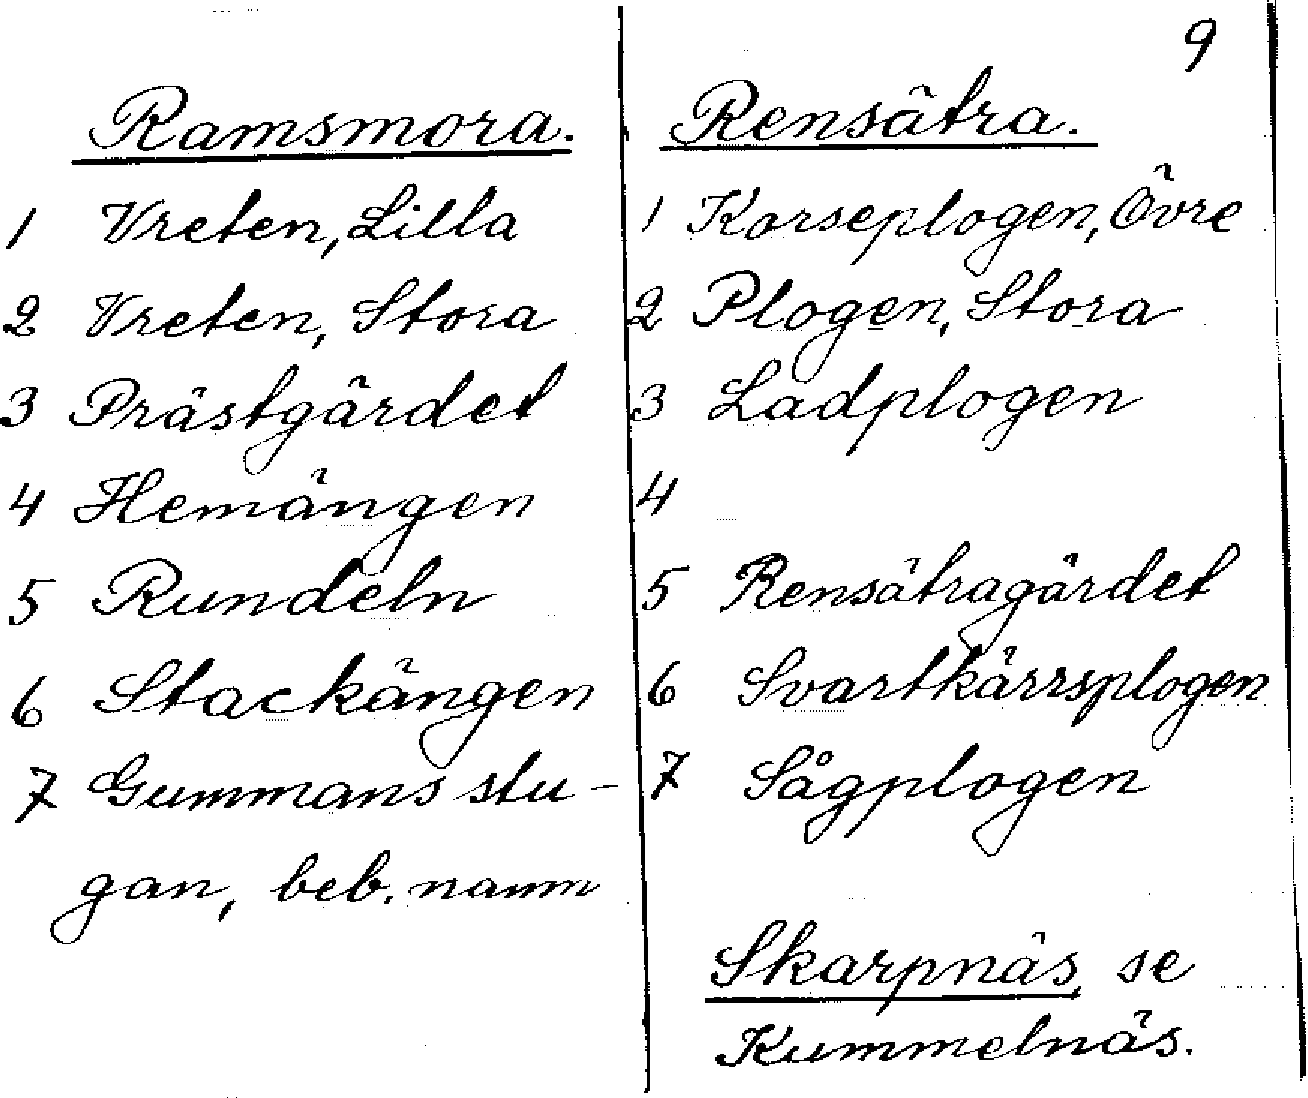 9
Ramsmora.
1 Vreten, Lilla
2 Vreten, Stora
3 Prästgärdet
4 Hemängen
5 Rundeln
6 Stackängen
7 Gummans stu-
gan, beb. namn
Rensätra.
1 Korseplogen, Övre
2 Plogen, Stora
3 Ladplogen
4
5 Rensätragärdet
6 Svartkärrsplogen
7 Sågplogen
Skarpnäs se
Kummelnäs.